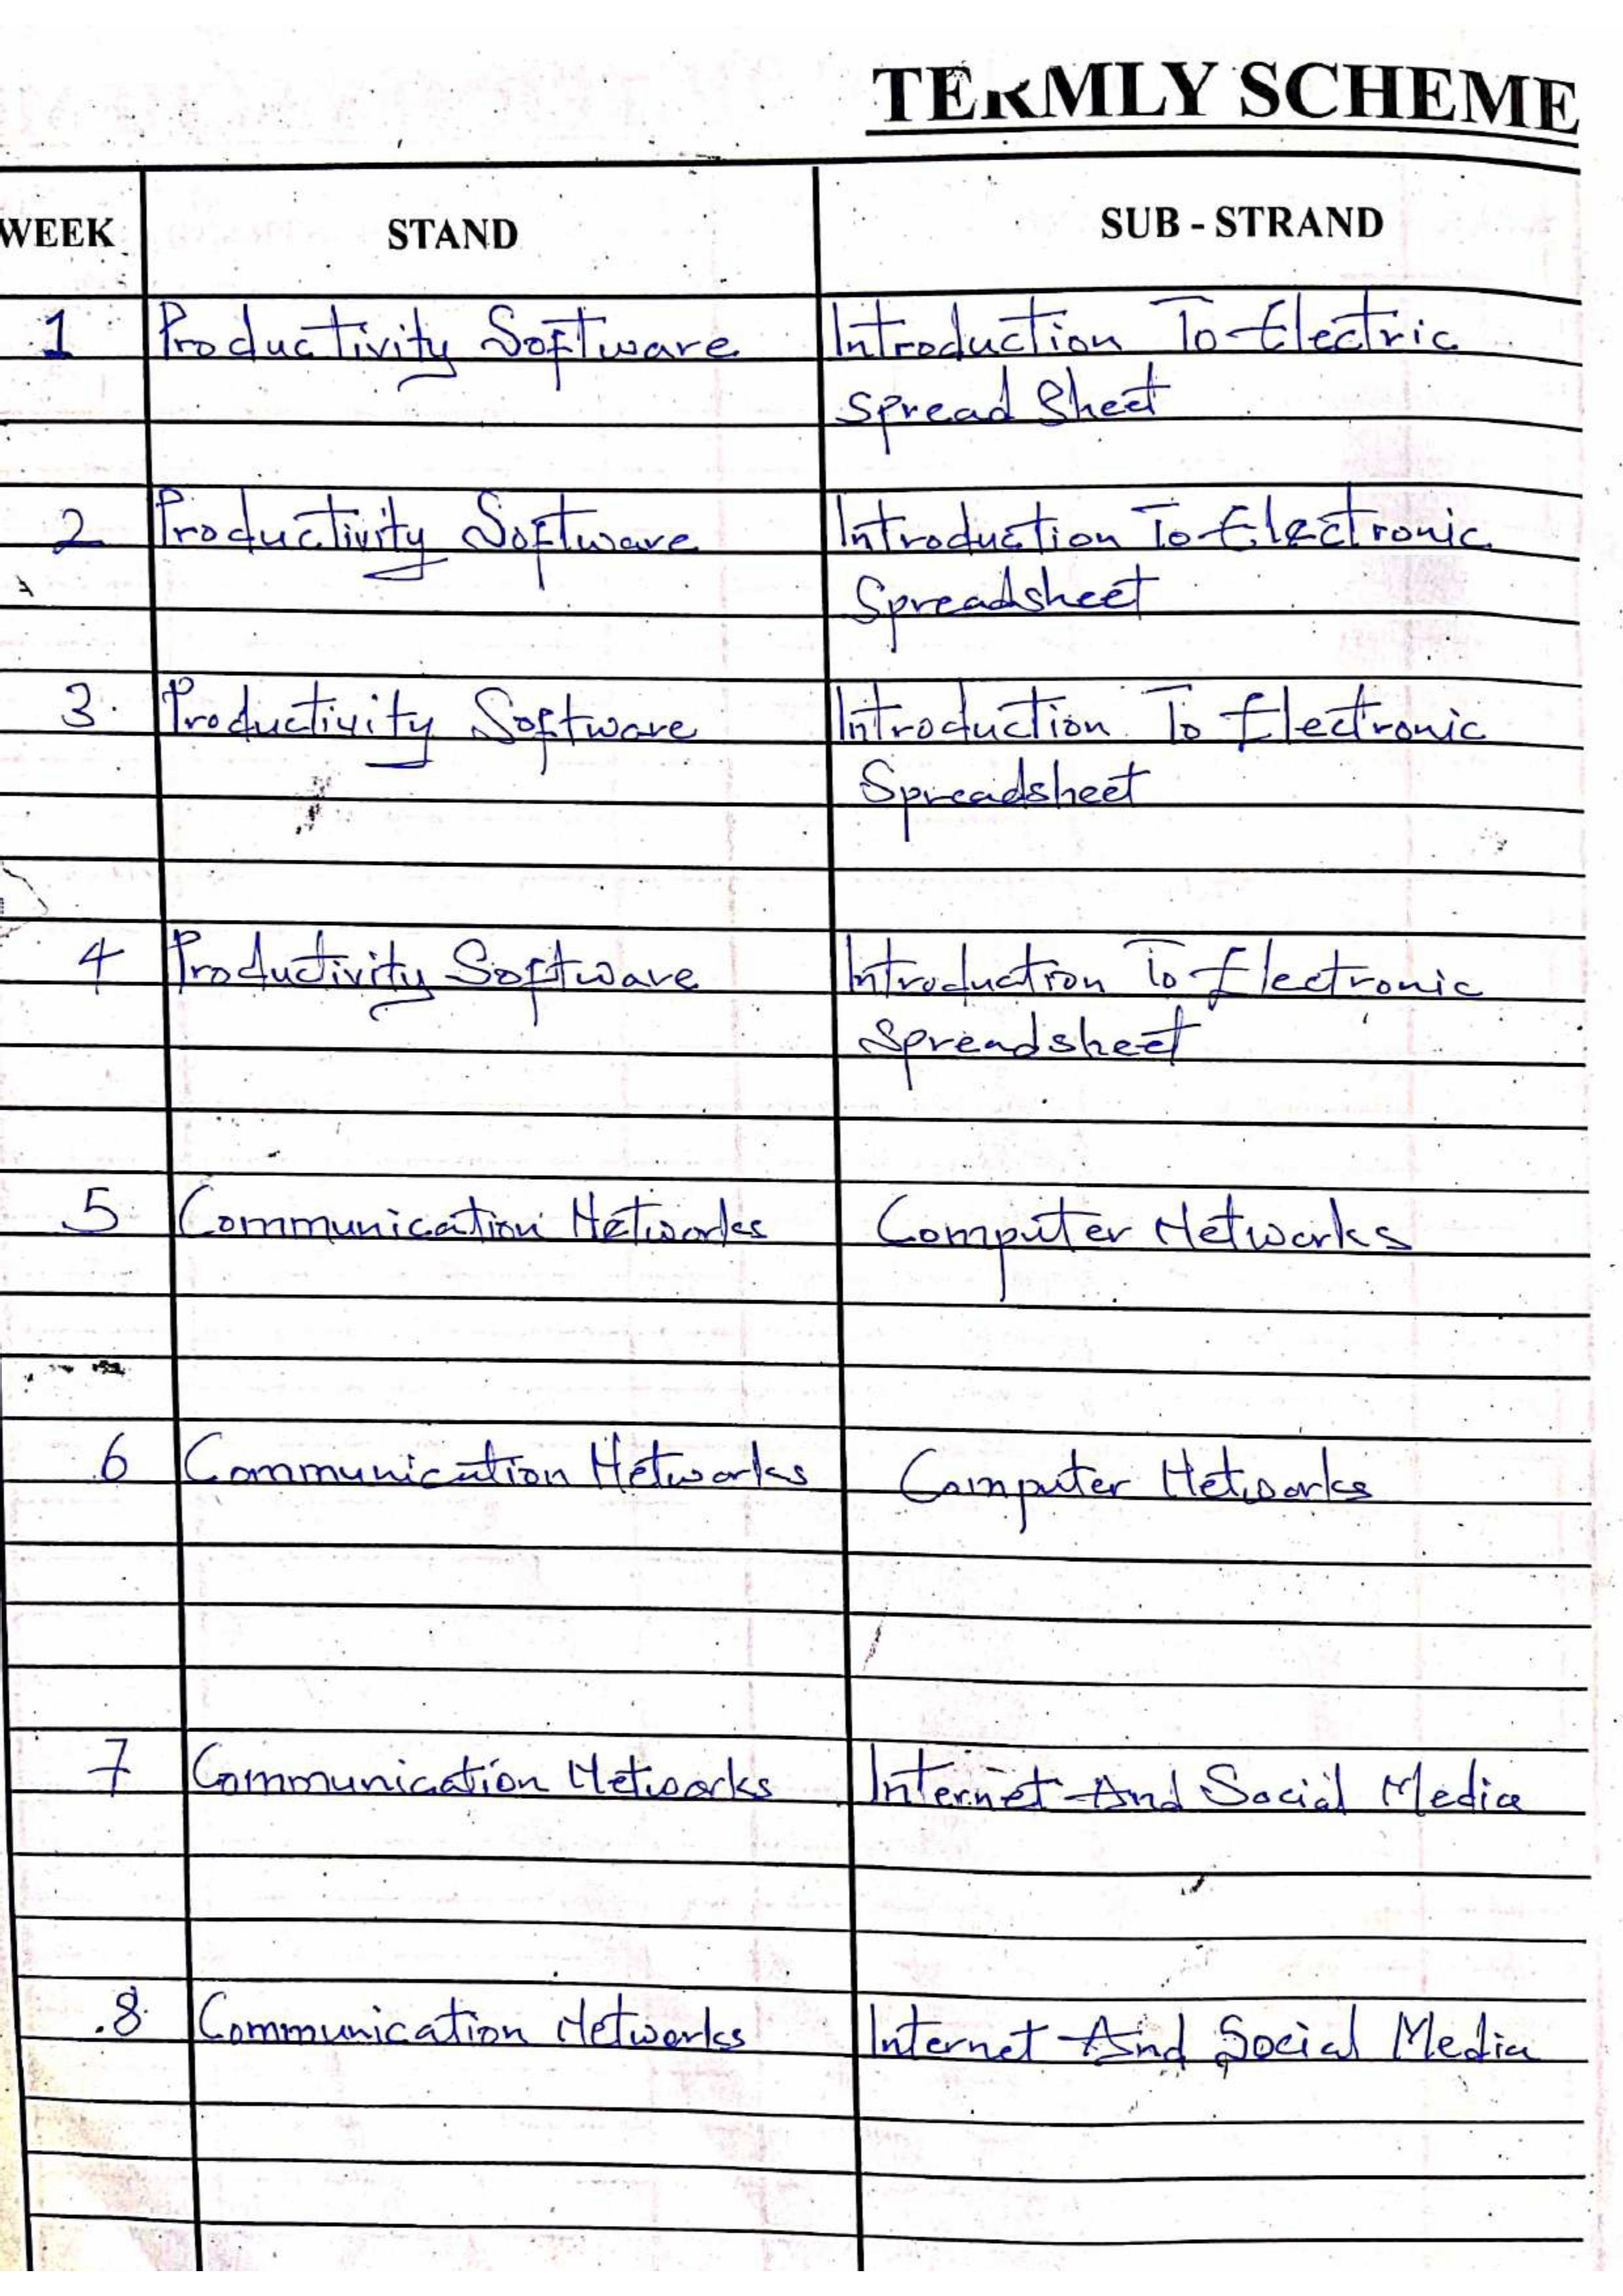 TERMLY SCHEME
WEEK STAND SUB - STRAND
1 Productivity Software Introduction To Electric
Spread Sheet
2 Productivity Software Introduction To Electronic
Spreadsheet
3. Productivity Software Introduction To Electronic
Spreadsheet
4 Productivity Software Introduction To Electronic
Spreadsheet
5 Communication Networks Computer Networks
6 Communication Networks Computer Networks
7 Communication Networks Internet And Social Media
8 Communication Networks Internet And Social Media